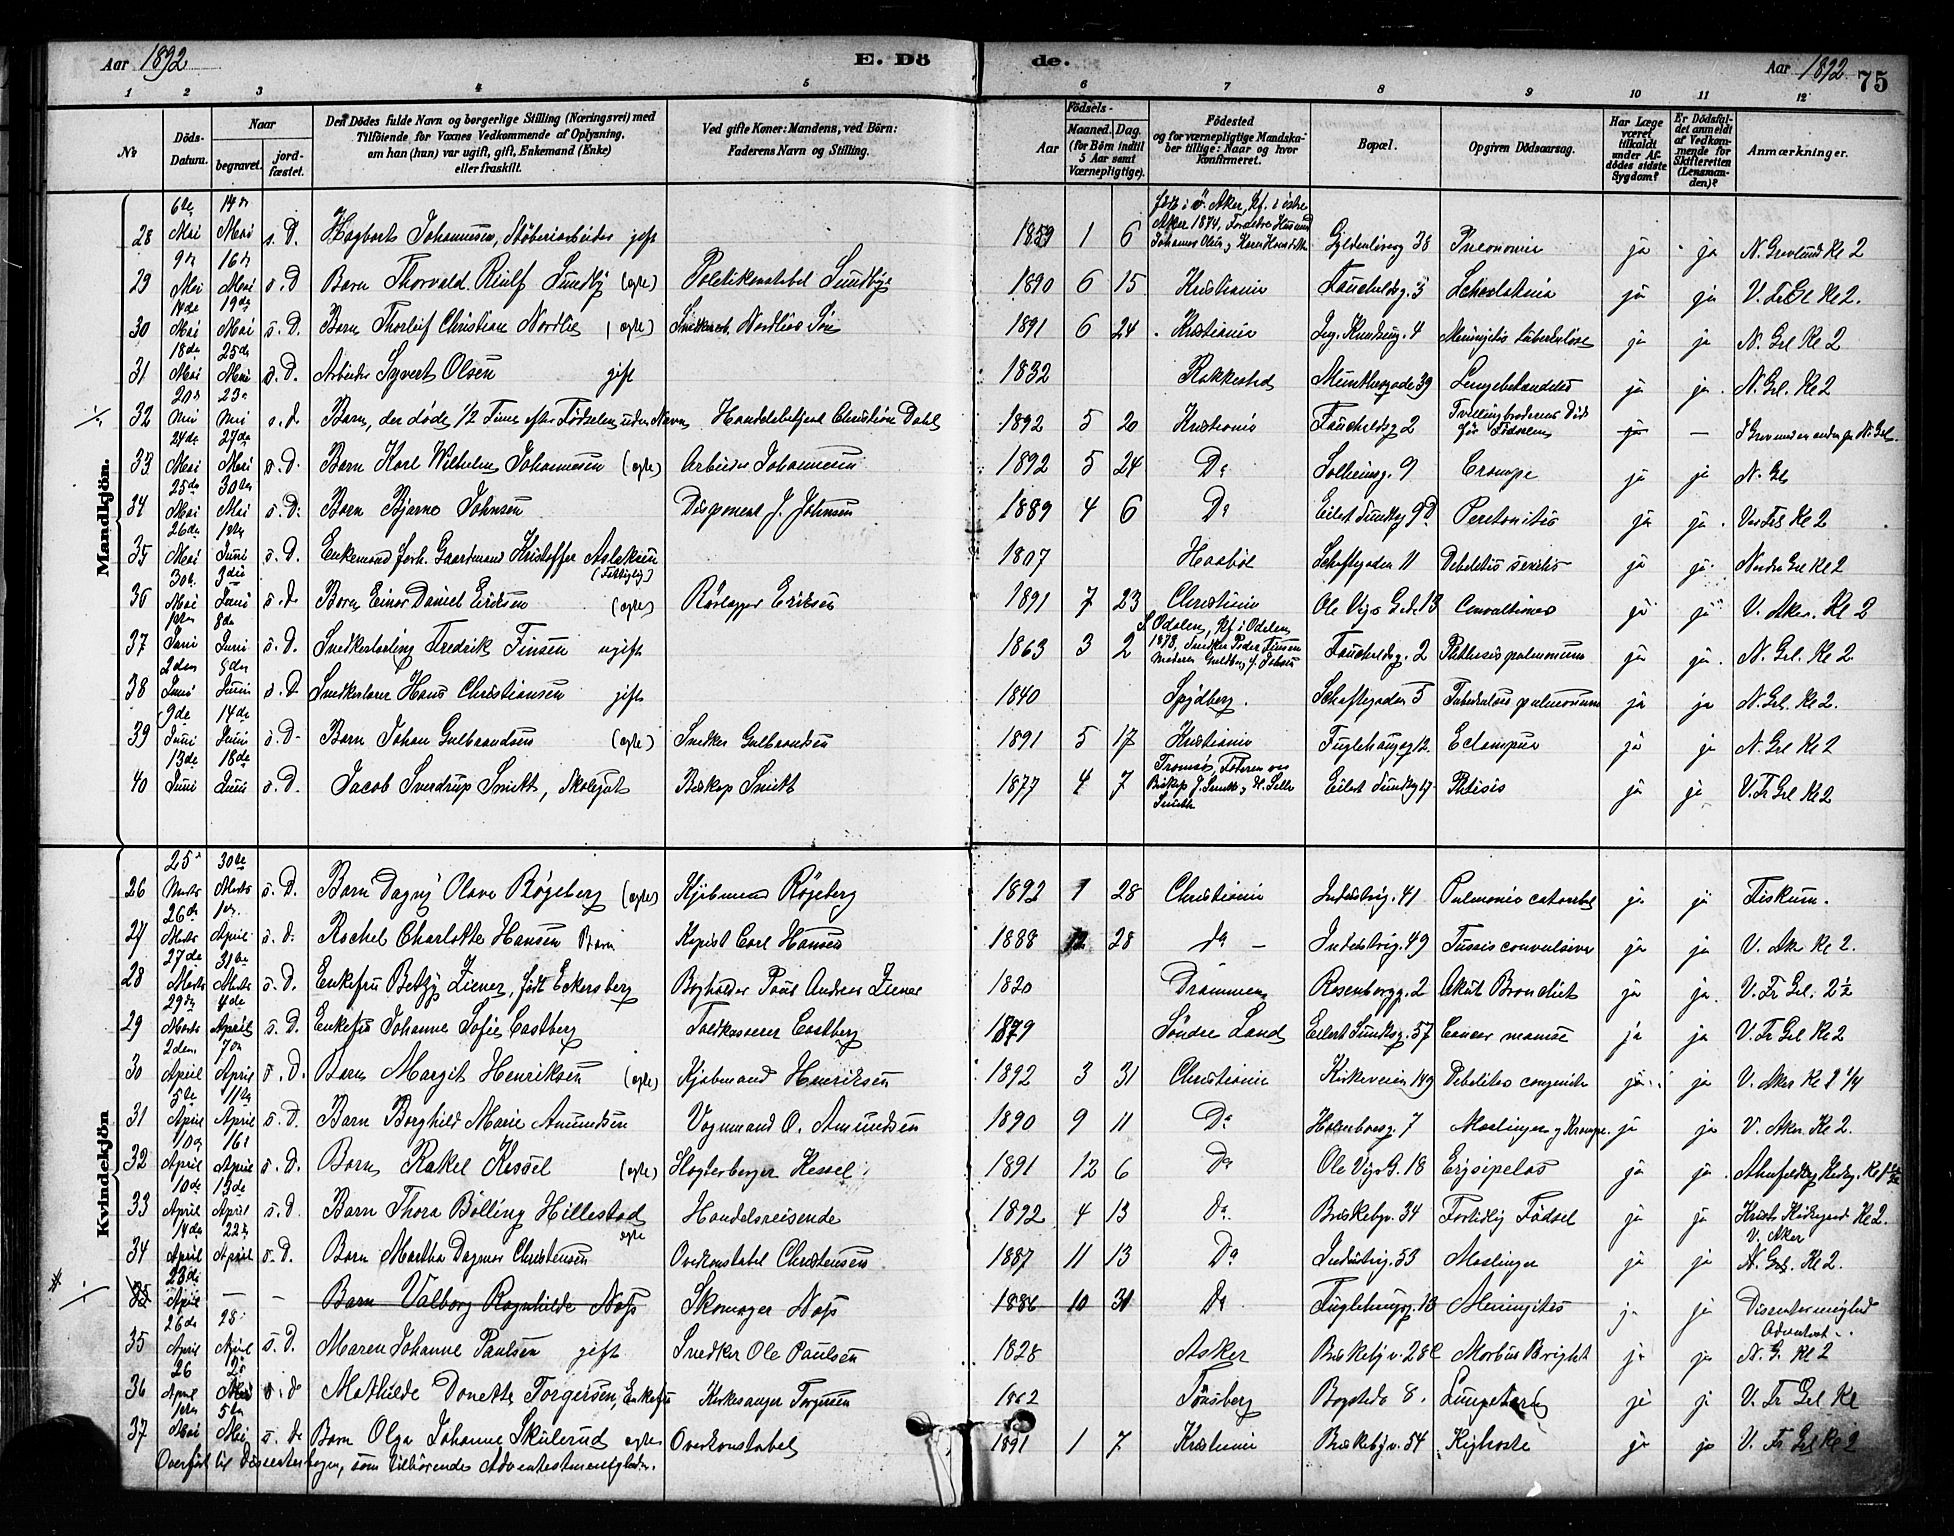 Aar 1892 E. Dö de. Aar 1892 75
1 2 3 4 5 6 7 8 9 10 11 12
No. Döds-Datum. Naar begravet. jordfæstet. Den Dödes fulde Navn og borgerlige Stilling (Næringsvei) med Tilföiende for Voxnes Vedkommende af Oplysning, om han (hun) var ugift, gift, Enkemand (Enke) eller fraskilt. Ved gifte Koner: Mandens, ved Börn: Faderens Navn og Stilling. Födsels- Aar Maaned. Dag. (for Börn indtil 5 Aar samt Værnepligtige). Födested og for værnepligtige Mandskaber tillige: Naar og hvor Konfirmeret. Bopæl. Opgiven Dödsaarsag. Har Læge været tilkaldt under Afdödes sidste Sygdom? Er Dödsfaldet anmeldt af Vedkommende for Skifteretten (Lensmanden)? Anmærkninger.
Mandkjön.
28 6te Mai 14de Mai s. D. Hagbarth Johannesen, Støberiarbeider gift 1859 1 6 Født i Ø. Aker, Kf. i østre Aker 1874, Gyldenløvesg 38 Pneomonie ja ja N. Gravlund Kl 2
29 9de Mai 16de Mai s. D Barn Thorvald Reiulf Sundby (egte) Politikonstabel Sundby 1890 6 15 Kristiania Fauchaldsg. 3 Scharlatina ja ja V. Fr Grl Kl 2.
30 14de Mai 19de Mai s. D. Barn Thorleif Christian Nordlie (egte) Nordlies Søn 1891 6 24 Kristiania Meningitis tuberkuløse ja ja N. Grl Kl 2
31 18de Mai 25de Mai s. D. Arbeider Syvert Olsen gift 1832 Rakkestad Munthesgade 39 Lungebetændelse ja ja N. Grl. Kl 2
32 20de Mai 23de Mai s. d Barn, der døde 1/2 Time efter Fødselen uden Navn Handelsbetjent Christian Dahl 1892 5 20 Kristiania Fauchaldsg 2 Tvillingbroderens Død før Fødselen ja — I Grav med en anden paa N. Grl.
33 24de Mai 27de Mai s. D. Barn Karl Wilhelm Johannesen (egte) Arbeider Johannesen 1892 5 24 Do Solheimsg. 9 Krampe ja ja N. Grl
34 25de Mai 30te Mai s. D. Barn Bjarne Johnsen Disponent J. Johnsen 1889 4 6 Do Eilert Sundtsg 9D Peritonitis ja ja Vor Frl Kl 2
35 26de Mai 1ste Juni s. D. Enkemand forh. Gaardmand Kristoffer Aslaksen (Fattiglig) 1807 Haabøl Schaftegaden 11 Debilitas senilis ja ja Nordre Grl Kl 2
36 30te Mai 3die Juni s. d. Barn Einar Daniel Eriksen (egte) Rørlægger Eriksen 1891 7 23 Christiania Ole Vigs G. d. 13 Convultiones ja ja V. Aker. Kl 2
37 1ste Juni 8de Juni s. D. Snedkerlærling Fredrik Finsen ugift 1863 3 2 S. Odalen, Kf. i Odalen 1878, Snedker Peder Finsen Fauchaldsg. 2 Phthisis pulmonum ja ja N. Grl. Kl 2
38 2den Juni 8de Juni s. D Snedkerlærer Hans Christiansen gift 1840 Spydberg. Schaftegaden 5 Tuberkulosis pulmonum ja ja N. Grl. Kl 2.
39 9de Juni 14de Juni s. D. Barn Johan Gulbrandsen (egte) Snedker Gulbrandsen 1891 5 17 Kristiania Fuglehaugg 12. Eclampsia ja ja N. Grl Kl 2
40 13de Juni 18de Juni s. D. Jacob Sverdrup Smitt, Skolegut Biskop Smitt 1877 4 7 Tromsø, Eilert Sundtsg Phtisis ja ja V. Fr Grl Kl 2
Kvindekjön
26 25 Marts 30te Marts s. D. Barn Dagny Olava Røgeberg (egte) Kjøbmand Røgeberg 1892 1 28 Christiania Industrig. 41 Pulmonia catarrhal ja ja Fiskum.
27 26de Marts 1ste April s. d. Rachel Charlotte Hansen Barn Kopist Carl Hansen 1888 12 28 do — Industrig. 49 Tussis convulsiva ja ja V. Aker Kl 2.
28 27de Marts 31te Marts s. D. Enkefru Betzy Ziener, født Eckersberg Bogholder Paul Andreas Ziener 1820 Drammen Rosenborgg. 2 Akut Bronchit ja ja V. Fr Grl. 2½
29 29de Marts 4de April s. D. Enkefru Johanne Sofie Castberg Toldkasserer Castberg 1879 Søndre Land Eilert Sundtsg. 57 Cancer mamæ ja ja V. Fr Grl Kl 2
30 2den April 7de April s. D. Barn Margit Henriksen (egte) Kjøbmand Henriksen 1892 3 31 Christiania Kirkeveien 149 Debilitas congenita ja ja V. Aker Kl 2 1/4
31 5te April 11te April s. D. Barn Borghild Marie Amundsen Vognmand O. Amundsen 1890 9 11 Do Holmboesg. 7 Mæslinger og Krampe ja ja V. Aker. Kl 2.
32 10de April 16de April s. D. Barn Rakel Kessel (egte) Slagterborger Kessel 1891 12 6 Do Ole Vigs G. 18 Erysipelas ja ja
33 10de April 13de April s. D. Barn Thora Bølling Hillestad egte Handelsreisende 1892 4 13 Do. Briskebyv. 34 Fortidlig Fødsel ja ja Krists Kirkegaard Kl 2.
34 14de April 22de April s. D. Barn Martha Dagmar Christensen Overkonstabel Christensen 1887 11 13 Do Industrig. 53 Mæslinger ja ja V. Aker N. Grl. Kl 2.
35 23de April — — Barn Valborg Ragnhilde Næss Skomager Næss 1886 10 31 Do Fuglehaugg. 13 Meningitis ja ja Dissentermeglad Adventist.
35 26de April 28 April s. D. Maren Johanne Paulsen gift Snedker Ole Paulsen 1828 Asker Briskebyv. 28C Morbus Brighti ja ja N. G. Kl 2
36 26 April 2 Mai s. d Mathilde Donette Torgersen, Enkefru Kirkesanger Torgersen Tønsberg Bogstadv 8. ja ja V. Fr Grl Kl
37 1ste Mai 5te Mai s. d Barn Olga Johanne Skulerud egte Overkonstabel 1891 1 7 Kristiania Briskebyv. 54 Kighoste ja ja V. Fr Grl Kl 2
Overført til Dissenterbogen, som tilhørende Adventistmenigheden.